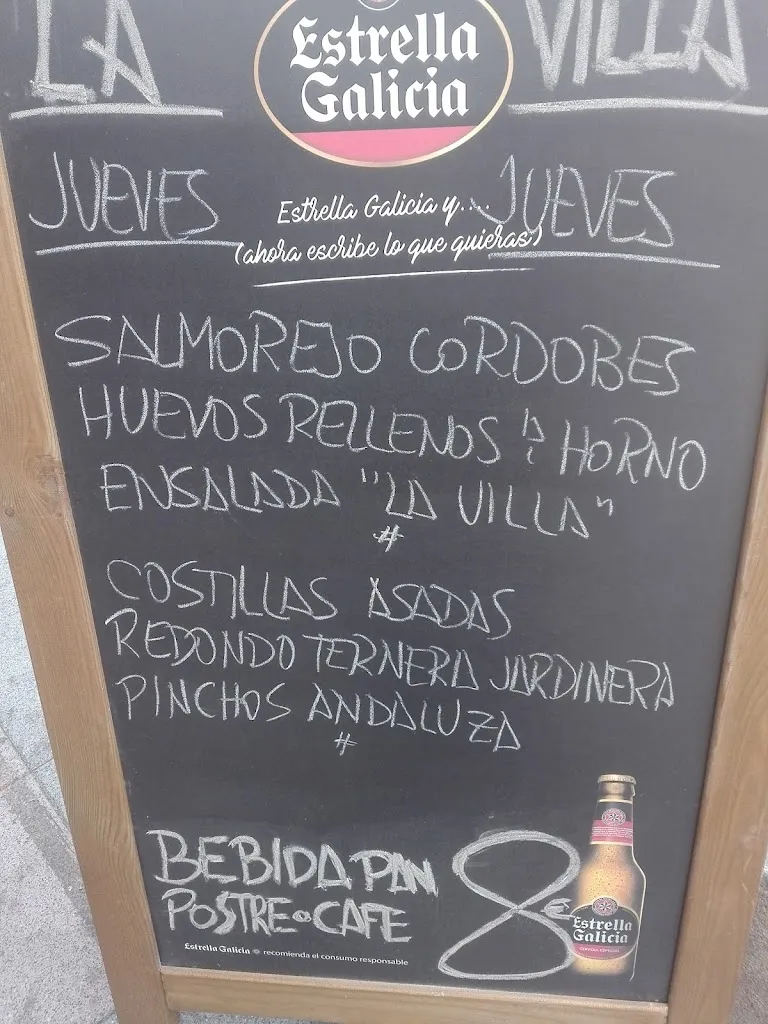 LA VILLA
Estrella
Galicia
JUEVES JUEVES
Estrella Galicia y....
(ahora escribe lo que quieras)
SALMOREJO CORDOBES
HUEVOS RELLENOS HORNO
ENSALADA "LA VILLA"
#
COSTILLAS ASADAS
REDONDO TERNERA JARDINERA
PINCHOS ANDALUZA
#
BEBIDA PAN
POSTRE o CAFE
8€
Estrella
Galicia
Estrella Galicia recomienda el consumo responsable